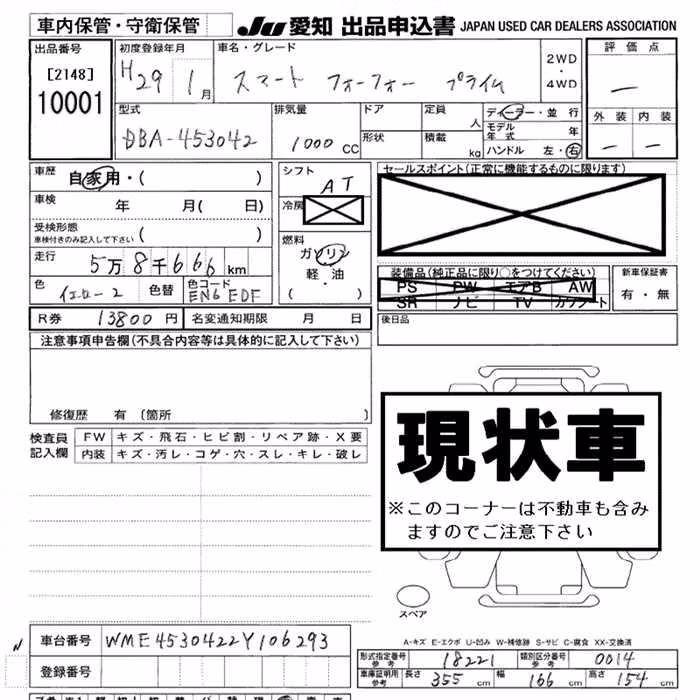 車内保管・守衛保管
JU 愛知 出品申込書 JAPAN USED CAR DEALERS ASSOCIATION
出品番号
[2148]
10001
初度登録年月
H29 1月
車名・グレード
スマート フォーフォー プライム
2WD
・
4WD
評価点
—
外装 内装
— —
型式
DBA-453042
排気量
1000 CC
ドア
形状
定員
人
積載
kg
ディーラー・並行
モデル年式 年
ハンドル 左・右
車歴
自家用・( )
車検 年 月( 日)
受検形態
車検付きのみ記入して下さい ( )
走行
5万8千666km
色
イエロー2
色替
色コード
EN6 EDF
シフト
AT
冷房
燃料
ガソリン
軽・油
( ・ )
セールスポイント(正常に機能するものに限ります)
装備品(純正品に限り○をつけてください)
PS PW エアB AW
SR ナビ TV カワシート
新車保証書
有・無
R券 13800円 名変通知期限 月 日
後日品
注意事項申告欄(不具合内容等は具体的に記入して下さい)
修復歴 有 (箇所 )
検査員
記入欄
FW キズ・飛石・ヒビ割・リペア跡・X要
内装 キズ・汚レ・コゲ・穴・スレ・キレ・破レ
現状車
※このコーナーは不動車も含み
ますのでご注意下さい
スペア
A-キズ E-エクボ U-凹み W-補修跡 S-サビ C-腐食 XX-交換済
車台番号 WME4530422Y106293
登録番号
形式指定番号
参考
18221
類別区分番号
参考
0014
車庫証明用
参考
長さ 355 cm 幅 166 cm 高さ 154 cm